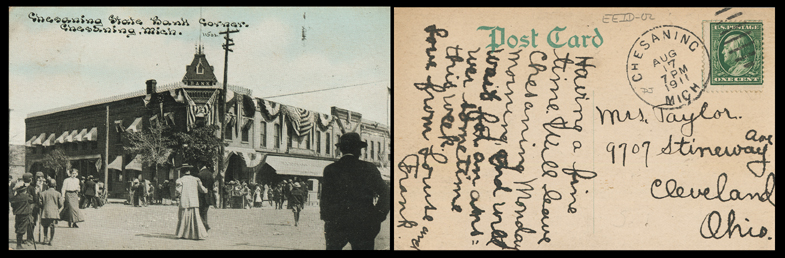 Chesaning State Bank Corner.
Chesaning, Mich.
EEIO-02
Post Card
CHESANING
AUG
17
7 PM
1911
MICH
U.S. POSTAGE
ONE CENT
Having a fine
time Will leave
Chesaning Monday
morning and will
wait for an ans=
wer sometime
this week.
love from Louse and
Frank
Mrs. Taylor.
9707 Stineway Ave
Cleveland
Ohio.